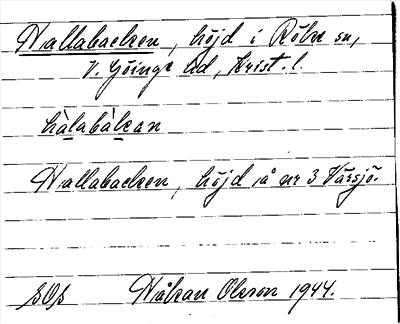 Hallabacken, höjd i Röke sn,
V. Göinge hd, Krist. l.
hàlabàkan
Hallabacken, höjd på nr 3 Värsjö.
SOs Håkan Olsson 1944.